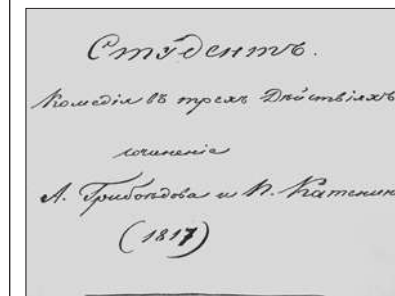 Студентъ.
Комедія въ трехъ Дѣйствіяхъ
сочиненіе
А. Грибоѣдова и П. Катенин
(1817)